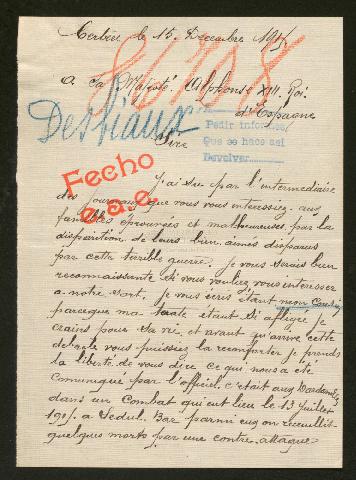 Cerbère le 15 Decembre 1915
86708
A sa Majesté Alphonse XIII. Roi
d'Espagne
Desbiaux
Pedir informes
Que se hace así
Devolver
Sire
Fecho
J'ai su par l'intermédiaire
des journaux que vous vous interessiez aux
familles éprouvées et malheureuses par la
disparition de leurs bien aimés disparus
par cette terrible guerre. Je vous serais bien
reconnaissante si vous vouliez vous interesser
a notre sort. Je vous écris étant mon Cousin
parceque ma tante étant si affligée je
crains pour sa vie, et avant qu'arrive cette
debacle vous puissiez la reconforter je prends
la liberté de vous dire ce qui nous a été
Comunique par l'officiel c'etait aux Dardanelles
dans un Combat qui eut lieu le 13 Juillet
1915 a Sedul. Bar parmi eux on recueillit
quelques morts par une contre attaque